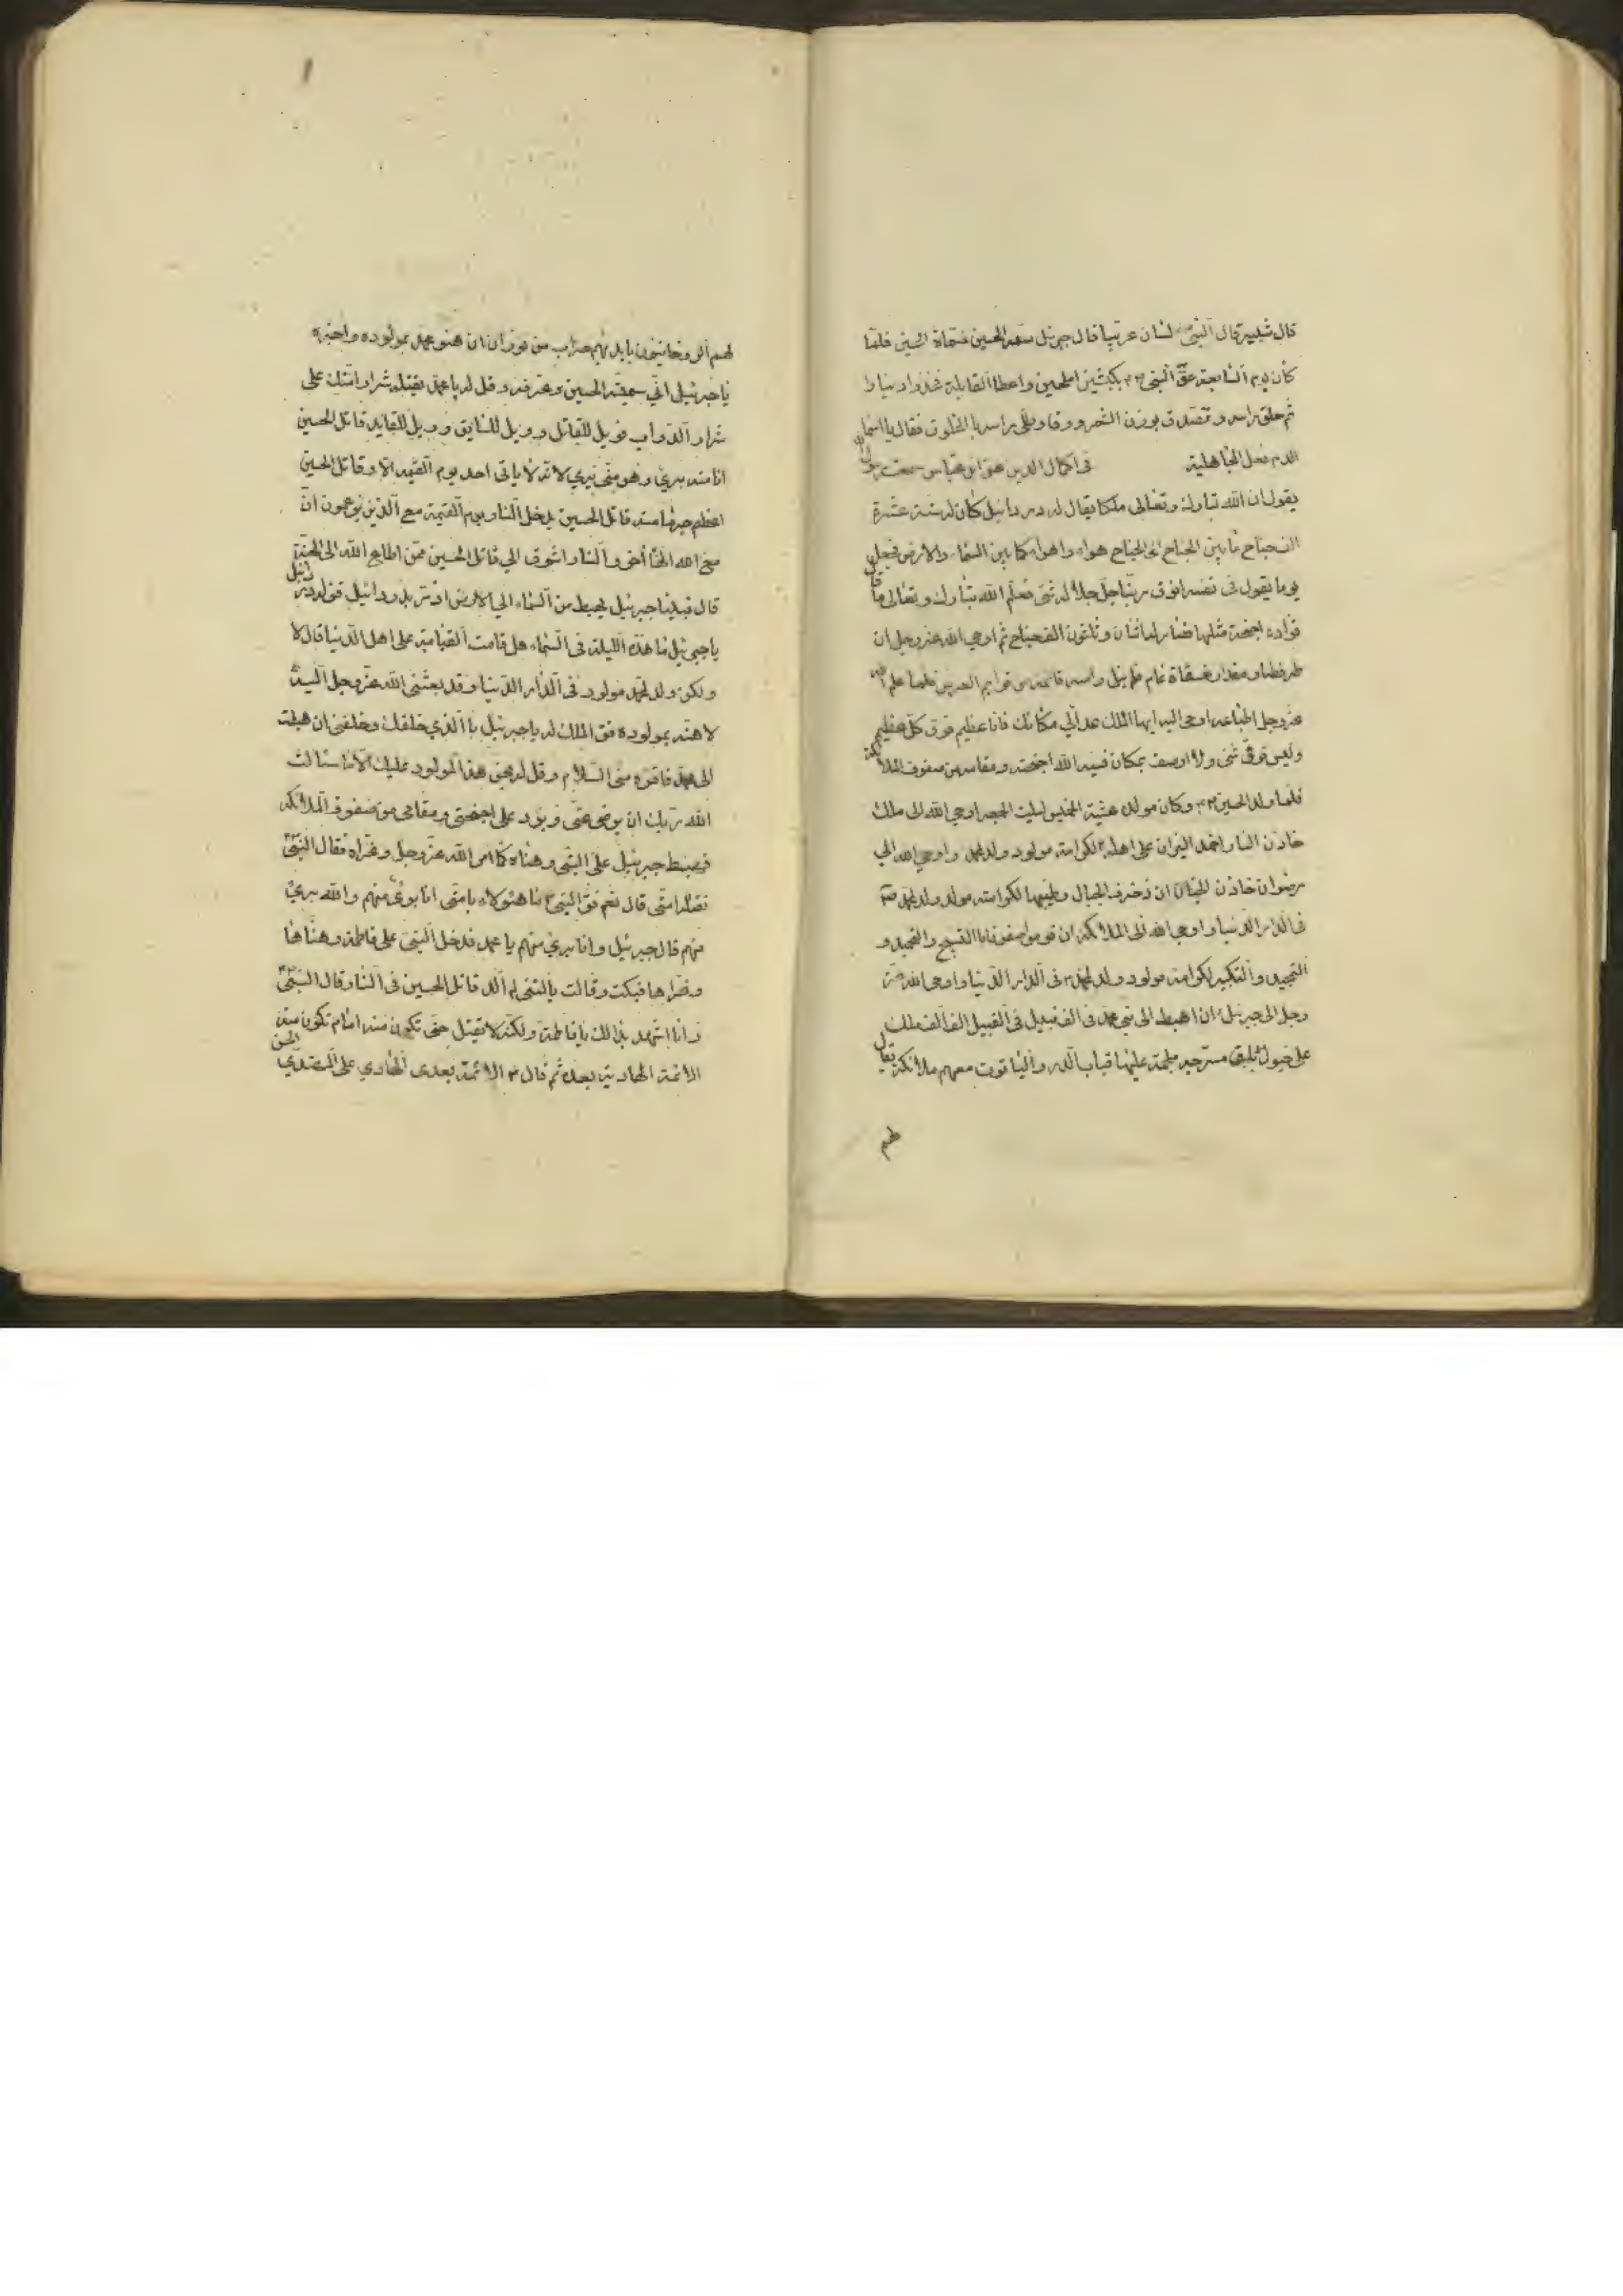 قال شبير قال النبي لسان عربيا قال جبرئيل سمه الحسين فسماه الحسين فلما
كان يوم السابعة عق النبي بكبشين املحين واعطا القابلة فخذا ودينارا
ثم حلق راسه وتصدق بوزن الشعر ورقا وطلى راسه بالخلوق فقال يا اسماء
الدم فعل الجاهلية في اكمال الدين عن ابن عباس سمعت رسول الله
يقول ان الله تبارك وتعالى ملكا يقال له دردائيل كان له ستة عشرة
الف جناح ما بين الجناح الى الجناح هواء والهواء كما بين السماء والارض فجعل
يوما يقول في نفسه افوق ربنا جل جلاله شئ فعلم الله تبارك وتعالى ما قال
فزاده اجنحة مثلها فصار له اثنان وثلثون الف جناح ثم اوحى الله عز وجل ان
طر فطار مقدار خمسماة عام فلم ينل راسه قائمة من قوايم العرش فلما علم الله
عز وجل اتعابه اوحى اليه ايها الملك عد الى مكانك فانا عظيم فوق كل عظيم
وليس فوقي شئ ولا اوصف بمكان فسلبه الله اجنحته ومقامه من صفوف الملائكة
فلما ولد الحسين وكان مولده عشية الخميس ليلة الجمعه اوحى الله الى ملك
خازن النار اخمد النيران على اهلها لكرامة مولود ولد لمحمد واوحى الله الى
رضوان خازن الجنان ان زخرف الجنان وطيبها لكرامة مولد ولد لمحمد
في الدار الدنيا واوحى الله الى الملائكة ان قوموا صفوفا بالتسبيح والتحميد و
التمجيد والتكبير لكرامة مولود ولد لمحمد في الدار الدنيا واوحى الله عز
وجل الى جبرئيل ان اهبط الى نبي محمد في الف قبيل في القبيل الف الف ملك
على خيول بلق مسرجة ملجمة عليها قباب الدر والياقوت معهم ملائكة يقال
لهم
لهم الروحانيون بايديهم حراب من نور ان هنو محمد بمولوده واخبره
يا جبرئيل اني سميته الحسين وعزه وقل له يا محمد يقتله شرار امتك على
شرار الدواب فويل للقاتل وويل للسايق وويل للقايد قاتل الحسين
انا منه بري وهو مني بري لانه لا ياتي احد يوم القيمه الا وقاتل الحسين
اعظم جرما منه قاتل الحسين يدخل النار يوم القيمة مع الذين يزعمون ان
مع الله الها اخر والنار اشوق الى قاتل الحسين ممن اطاع الله الى الجنة
قال فبينا جبرئيل يهبط من السماء الى الارض اذ مر بدردائيل فقال له دردائيل
يا جبرئيل ما هذه الليلة في السماء هل قامت القيامة على اهل الدنيا قال لا
ولكن ولد لمحمد مولود في الدار الدنيا وقد بعثني الله عز وجل اليه
لاهنه بمولوده فق الملك له يا جبرئيل بالذي خلقك وخلقني ان هبطت
الى محمد فاقره مني السلام وقل له بحق هذا المولود عليك الا ما سئالت
الله ربك ان يرضى عني ويرد على اجنحتي ومقامي من صفوف الملائكه
فهبط جبرئيل على النبي وهناه كما امر الله عز وجل وعزاه فقال النبي
تقتله امتي قال نعم فق النبي ما هؤلاء بامتي انا برئ منهم والله بري
منهم قال جبرئيل وانا بري منهم يا محمد فدخل النبي على فاطمة وهناها
وعزاها فبكت وقالت يا ليتني لم الد قاتل الحسين في النار وقال النبي
وانا اشهد بذالك يا فاطمة ولكنه لا يقتل حتى تكون منه امام تكون منه
الائمة الهادية بعده ثم قال الائمة بعدى الهادي على المهتدي الحسن